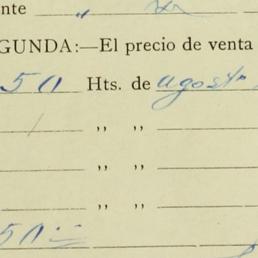 nte „
GUNDA:—El precio de venta
50 Hts. de agosto
„ „
„ „
„ „
50=